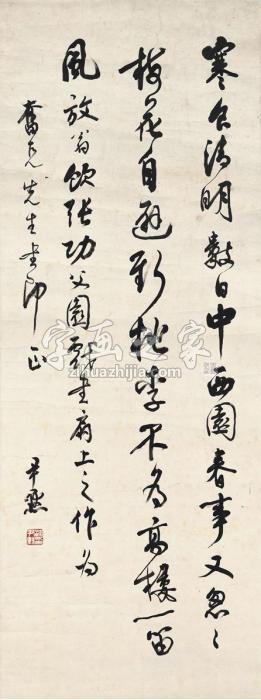 寒食清明數日中西園春事又怱〻
梅花自避新桃李不為高樓一笛
風放翁飲張功父園戲書扇上之作為
奮先生書即正
尹默
字画之家
zihuazhijia.com